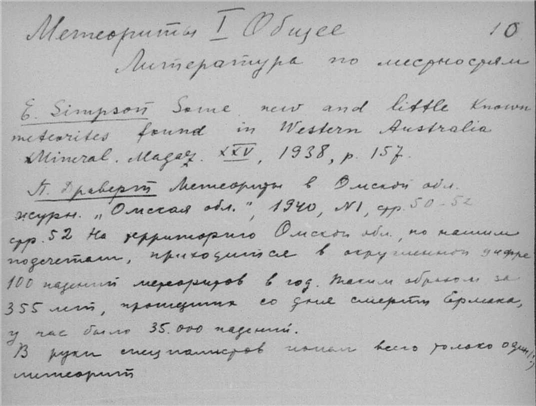 Метеориты I Общее 10
Литература по местностям
E. Simpson Some new and little known
meteorites found in Western Australia
Mineral. Magaz. XXV, 1938, p. 157.
П. Драверт Метеориты в Омской обл.
журн. „Омская обл.", 1940, N1, стр. 50-52
стр. 52 На территорию Омской обл., по нашим
подсчетам, приходится в округленной цифре
100 падений метеоритов в год. Таким образом за
355 лет, прошедших со дня смерти Ермака,
у нас было 35.000 падений.
В руки специалистов попал всего только один(!)
метеорит